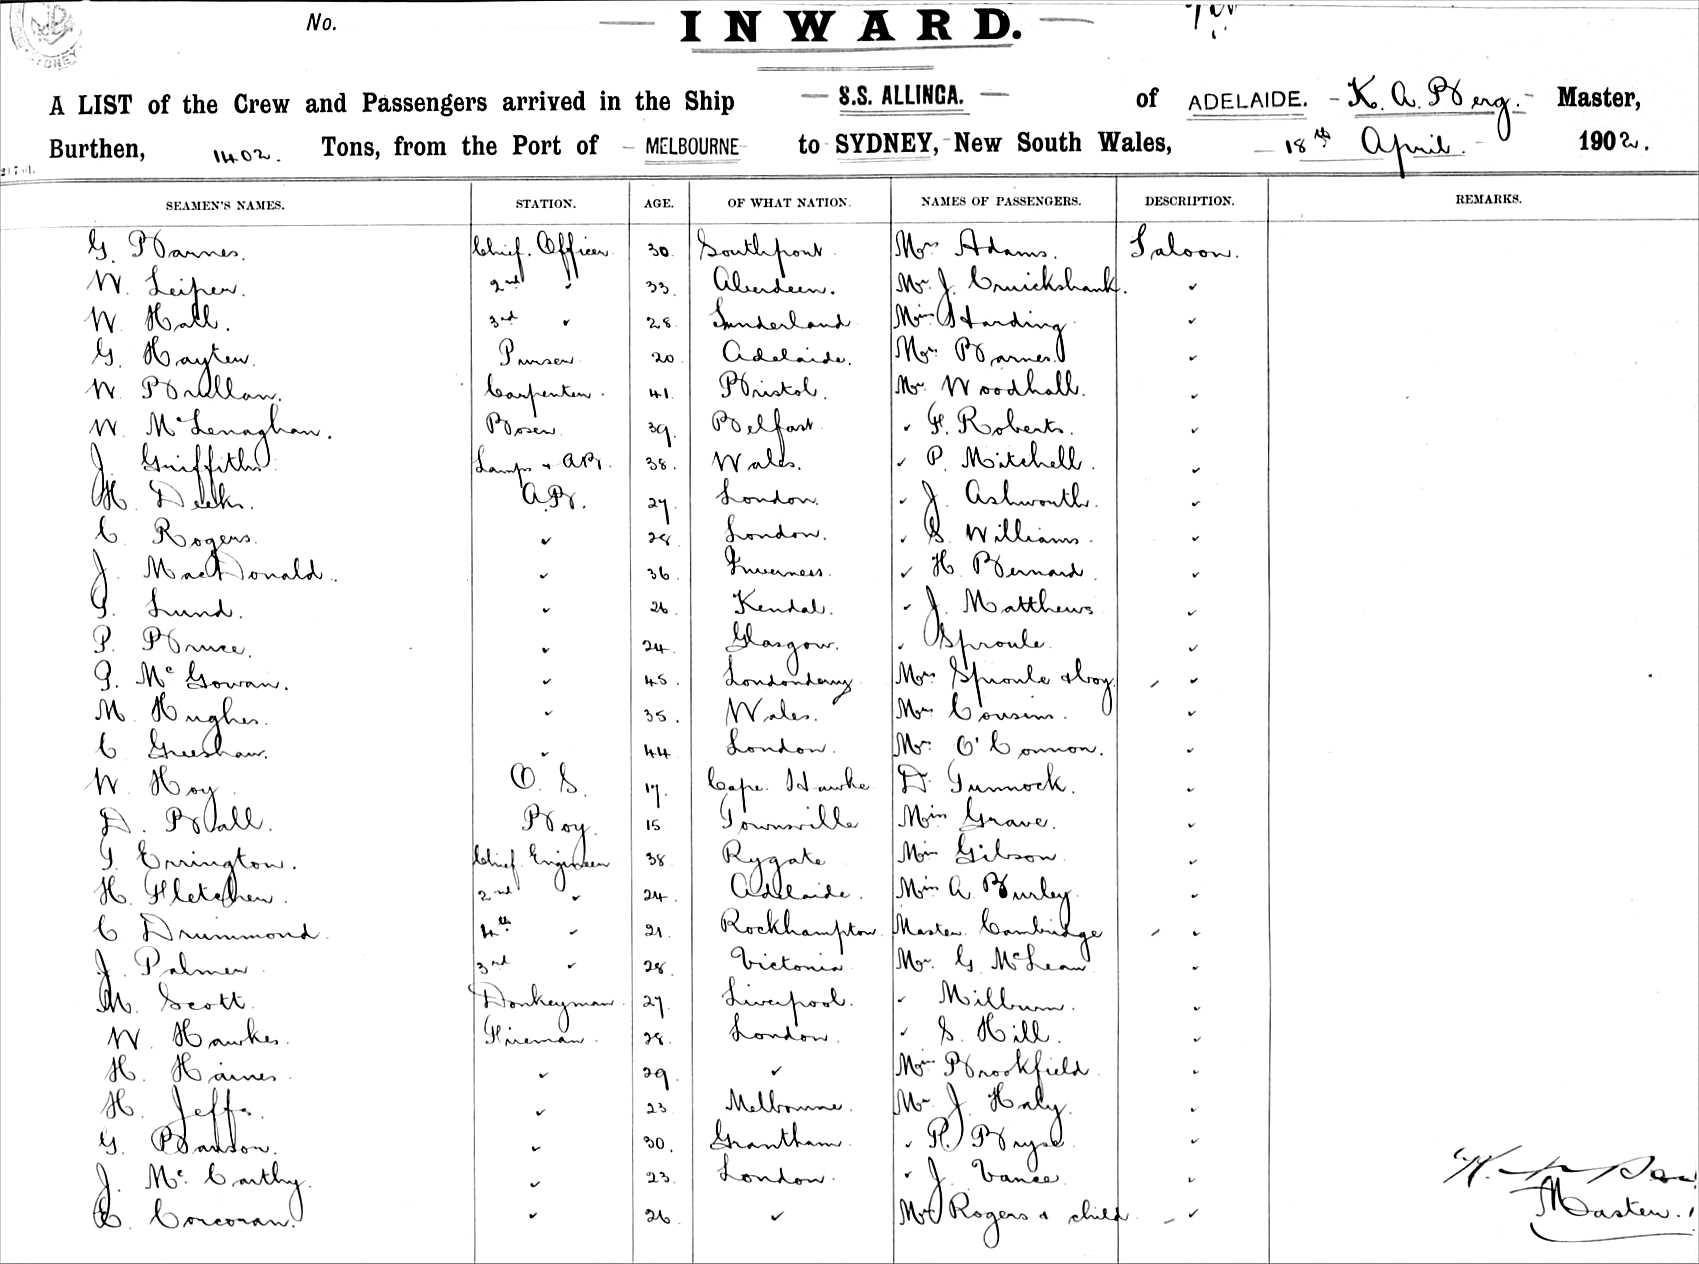 No. INWARD.
A LIST of the Crew and Passengers arrived in the Ship S.S. ALLINGA. of ADELAIDE. K. A. Berg. Master,
Burthen, 1402. Tons, from the Port of MELBOURNE to SYDNEY, New South Wales, 18th April. 1902.
SEAMEN'S NAMES. STATION. AGE. OF WHAT NATION. NAMES OF PASSENGERS. DESCRIPTION. REMARKS.
G. Barnes. Chief. Officer 30. Southport. Mrs Adams. Saloon.
W. Leiper. 2nd " 33. Aberdeen. Mr J. Cruickshank. "
W. Hall. 3rd " 28. Sunderland Miss Harding "
G. Hayter. Purser 20. Adelaide. Mrs Barnes. "
W. Brullan. Carpenter. 41. Bristol. Mr Woodhall. "
W. McLenaghan. Bosen 39. Belfast. " F. Roberts. "
J. Griffiths Lamps & AB. 38. Wales. " P. Mitchell. "
H. Deeks. A.B. 27. London. " J. Ashworth. "
C Rogers. " 28. London. " S. Williams. "
J. MacDonald. " 36. Inverness. " H. Bernard. "
Lund. " 26. Kendal. " J. Matthews "
P. Bruce. " 24. Glasgow. " Sproule. "
McGowan. " 45. Londonderry Mrs Sproule & boy. "
M. Hughes. " 35. Wales. Mrs Cousins. "
C Greeshaw. " 44 London. Mr O'Connor. "
W. Hoy O. S. 17. Cape. Hawke Dr Tunnock. "
D. Ball. Boy. 15 Townsville Miss Grave. "
T. Errington. Chief Engineer 38. Rygate Miss Gibson "
H. Fletcher. 2nd " 24. Adelaide. Miss A. Burley. "
C Drummond. 4th " 21. Rockhampton. Master Cambridge "
J. Palmer 3rd " 28. Victoria Mr. G. McLean "
M. Scott. Donkeyman. 27. Liverpool. " Milburn. "
W. Hawkes. Fireman. 28. London. " S. Hill. "
H. Haines. " 29. " Miss Brookfield "
H. Jeffs. " 23. Melbourne. Mr J. Haly. "
G. Banson. " 30. Grantham. " R. Bryse. "
J. McCarthy. " 23. London. " J. Vance. "
C. Corcoran. " 26. " Mrs Rogers & child "
Master.